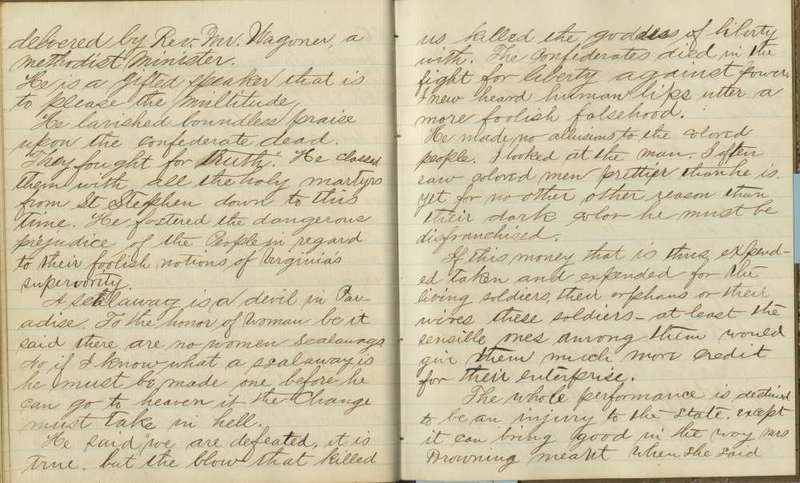 delivered by Rev. Mr. Wagoner, a
methodist Minister.
He is a gifted speaker that is
to please the multitude
He lavished boundless praise
upon the confederate dead.
They fought for truth. He classes
them with all the holy martyrs
from St Stephen down to this
time. He fostered the dangerous
prejudice of the People in regard
to their foolish notions of Virginia's
superiority.
A scalawag is a devil in Par-
adise. To the honor of Woman be it
said there are no women scalawags
if I know what a scalawag is
he must be made one before he
can go to heaven if the Change
must take in hell.
He said we are defeated, it is
true. but the blow that killed
us killed the goddess of liberty
with. The Confederates died in the
fight for liberty against power.
I never heard human lips utter a
more foolish falsehood.
He made no allusions to the colored
people. I looked at the man. I often
saw colored men prettier than he is
yet for no other other reason than
their dark color he must be
disfranchised.
If this money that is thus expend-
ed taken and expended for the
living soldiers, their orphans or their
wives these soldiers - at least the
sensible ones among them would
give them much more credit
for their enterprise.
The whole performance is destined
to be an injury to the State. except
it can bring good in the way Mrs
Browning meant when she said